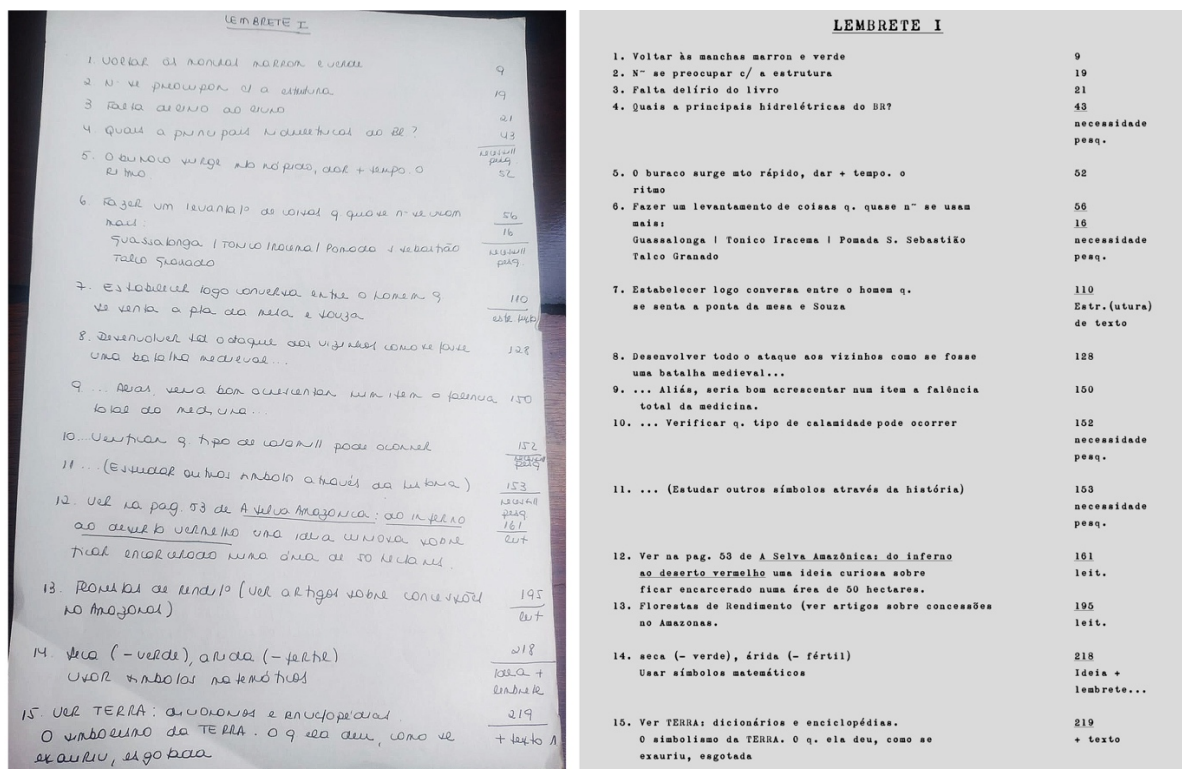 LEMBRETE I
1. VOLTAR ÀS MANCHAS MARRON E VERDE 9
2. Nˉ se preocupar c/ a estrutura 19
3. Falta delírio do livro 21
4. Quais a principais hidrelétricas do BR? 43
necessid
pesq
5. O buraco surge mto rápido, dar + tempo. O 52
ritmo
6. Fazer um levanta/º de coisas q. quase nˉ se usam 56
mais: 16
Guassalonga | Tonico Iracema | Pomada S. Sebastião necessid
Talco Granado pesq.
7. Estabelecer logo conversa entre o homem q. 110
se senta a pta da mesa e Souza estr. texto
8. Desenvolver todo o ataque aos vizinhos como se fosse 128
uma batalha medieval
9. ... Aliás, seria bom acrescentar num item a falência 150
total da medicina...
10. ... Verificar q. tipo de calamid pode ocorrer 152
necessid
pesq
11. ... (Estudar outros símbolos através da história) 153
necessid
pesq
12. Ver na pag. 53 de A Selva Amazônica: do inferno 161
ao deserto vermelho uma ideia curiosa sobre leit
ficar encarcerado numa área de 50 hectares.
13. Florestas de rendi/º (ver artigos sobre concessões 195
no Amazonas) leit
14. seca (-verde), árida (-fértil) 218
Usar símbolos matemáticos ideia +
lembrete
15. VER TERRA: dicionários e enciclopédias. 219
O simbolismo da TERRA. O q ela deu, como se + texto
exauriu, esgotada
LEMBRETE I
1. Voltar às manchas marron e verde 9
2. N~ se preocupar c/ a estrutura 19
3. Falta delírio do livro 21
4. Quais a principais hidrelétricas do BR? 43
necessidade
pesq.
5. O buraco surge mto rápido, dar + tempo. o 52
ritmo
6. Fazer um levantamento de coisas q. quase n~ se usam 56
mais: 16
Guassalonga | Tonico Iracema | Pomada S. Sebastião necessidade
Talco Granado pesq.
7. Estabelecer logo conversa entre o homem q. 110
se senta a ponta da mesa e Souza Estr.(utura)
de texto
8. Desenvolver todo o ataque aos vizinhos como se fosse 128
uma batalha medieval...
9. ... Aliás, seria bom acrescentar num item a falência 150
total da medicina.
10. ... Verificar q. tipo de calamidade pode ocorrer 152
necessidade
pesq.
11. ... (Estudar outros símbolos através da história) 153
necessidade
pesq.
12. Ver na pag. 53 de A Selva Amazônica: do inferno 161
ao deserto vermelho uma ideia curiosa sobre leit.
ficar encarcerado numa área de 50 hectares.
13. Florestas de Rendimento (ver artigos sobre concessões 195
no Amazonas. leit.
14. seca (- verde), árida (- fértil) 218
Usar símbolos matemáticos Ideia +
lembrete...
15. Ver TERRA: dicionários e enciclopédias. 219
O simbolismo da TERRA. O q. ela deu, como se + texto
exauriu, esgotada